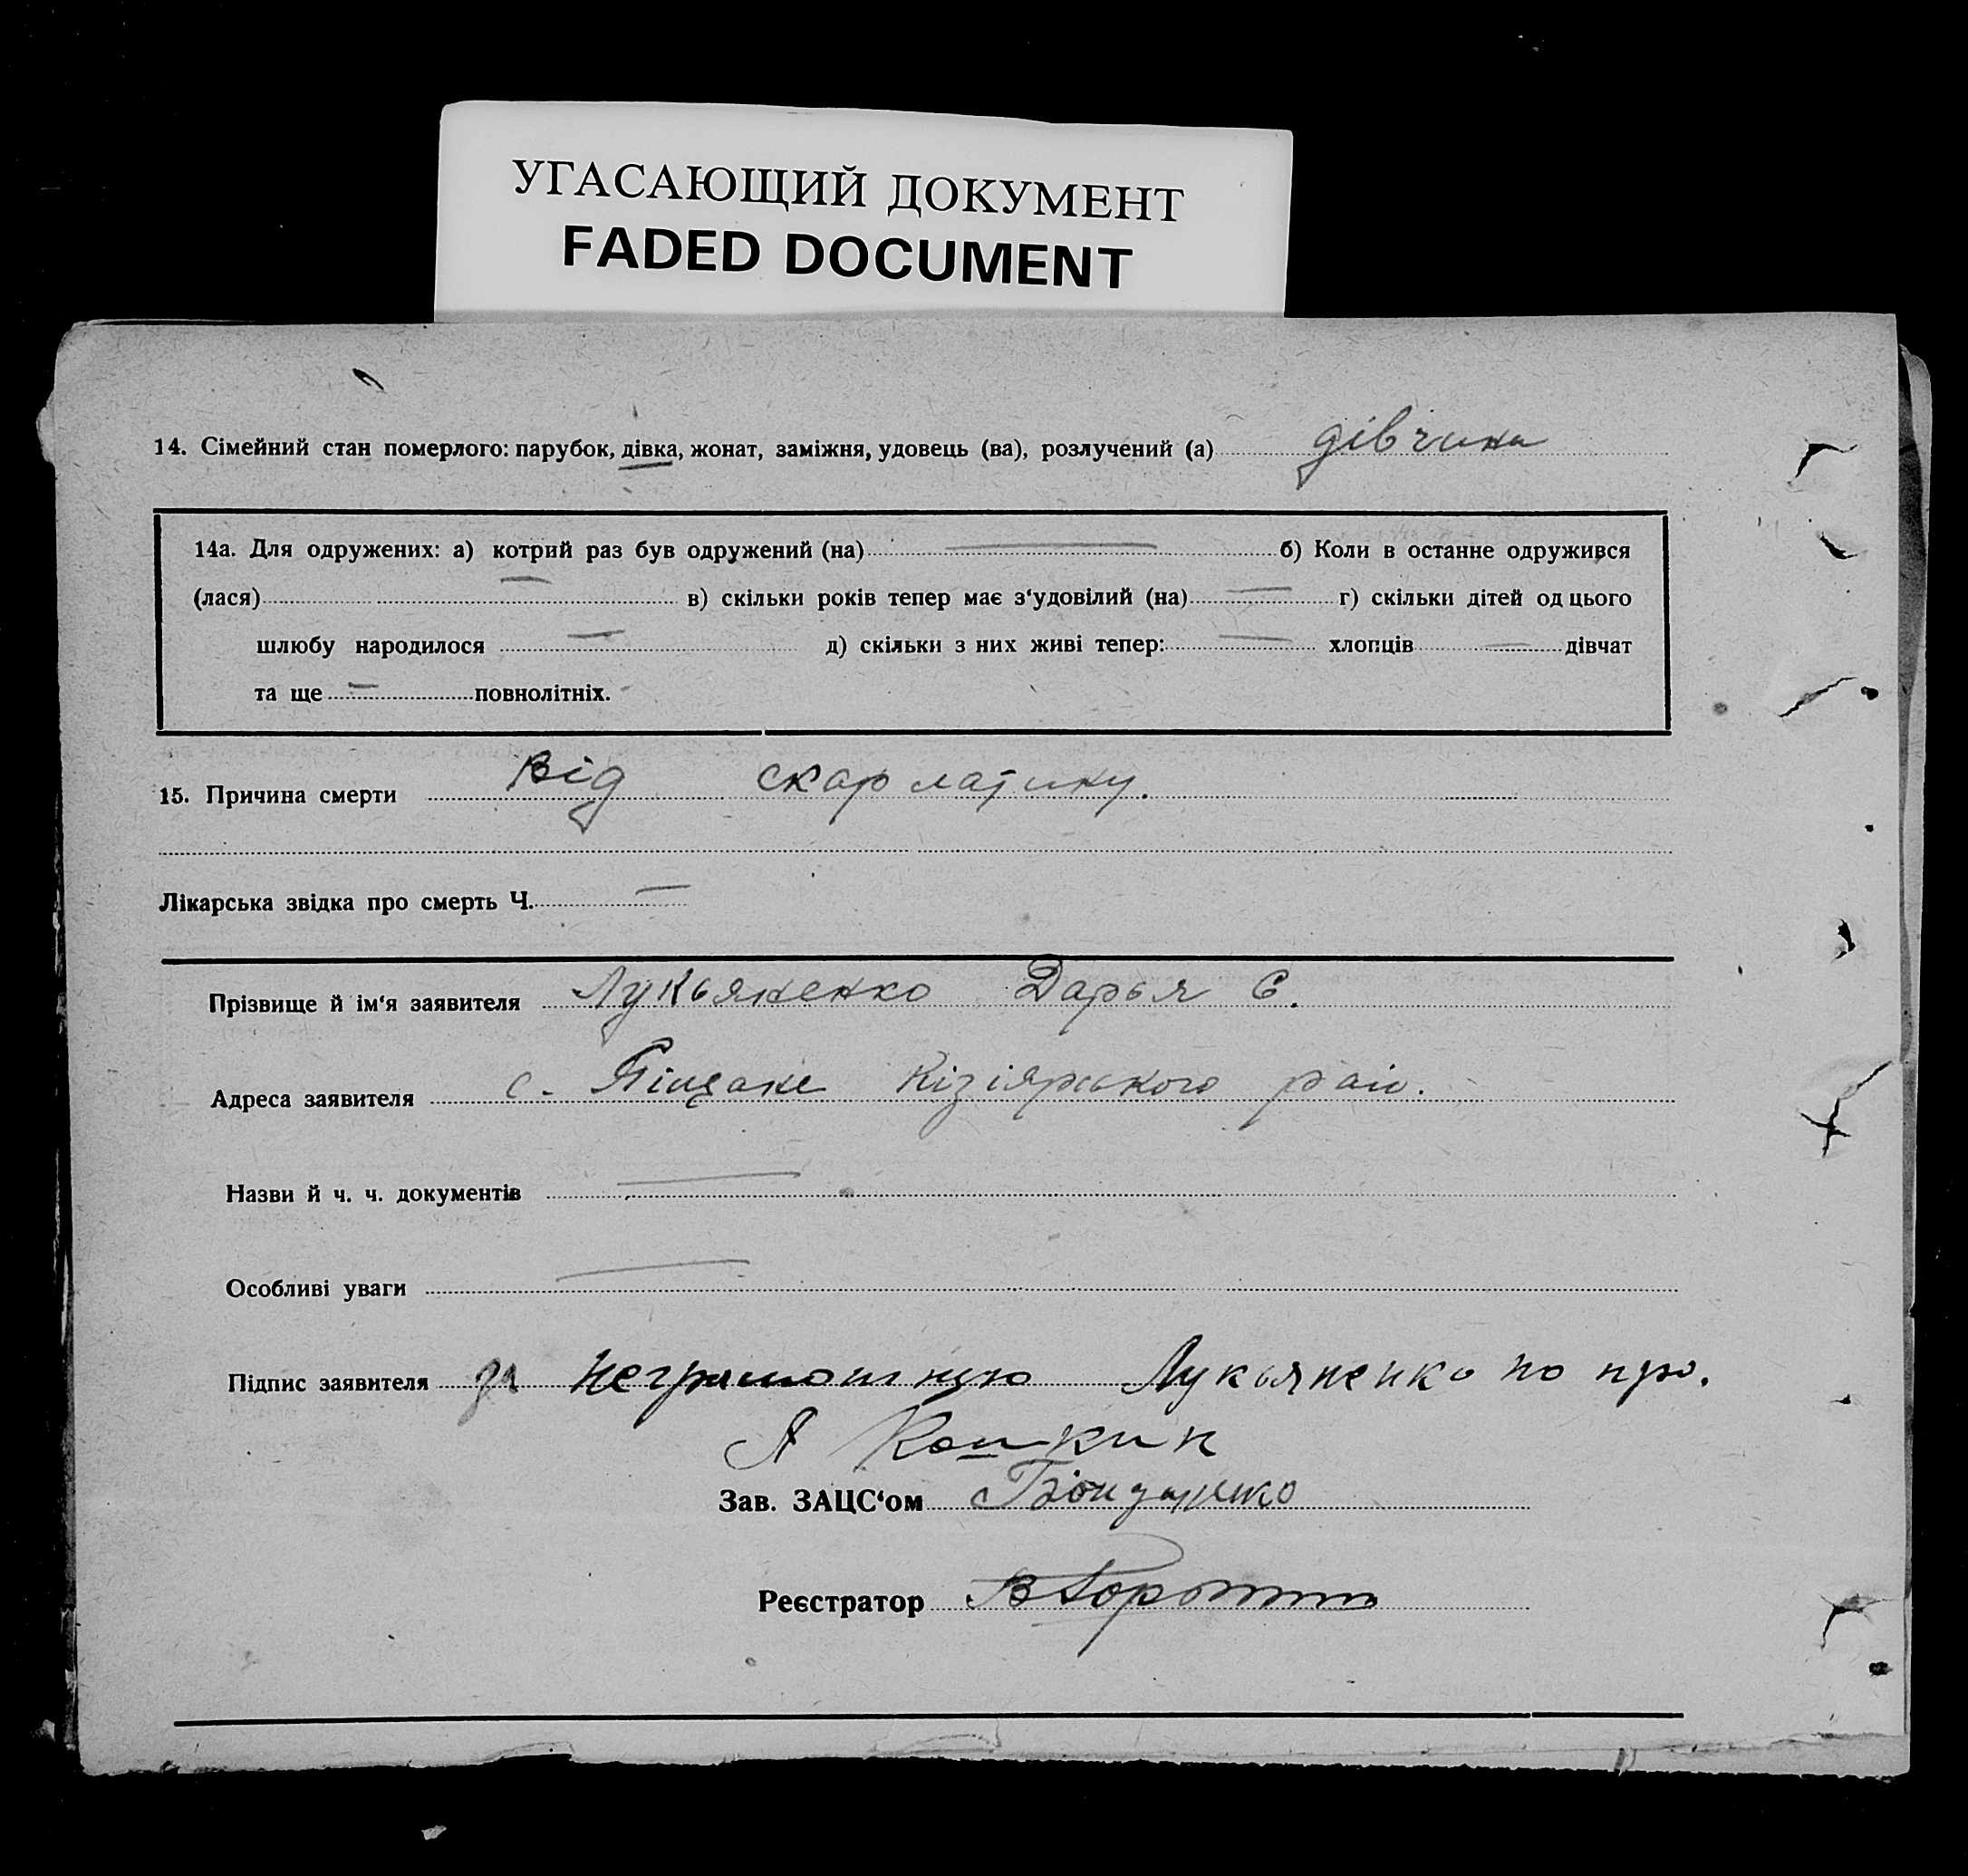 УГАСАЮЩИЙ ДОКУМЕНТ
FADED DOCUMENT
14. Сімейний стан померлого: парубок, дівка, жонат, заміжня, удовець (ва), розлучений (а) дівчина
14а. Для одружених: а) котрий раз був одружений (на) — б) Коли в останне одружився
(лася) — в) скільки років тепер має з‘удовілий (на) — г) скільки дітей од цього
шлюбу народилося — д) скільки з них живі тепер: — хлопців — дівчат
та ще — повнолітніх.
15. Причина смерти від скарлатину.
Лікарська звідка про смерть Ч. —
Прізвище й ім‘я заявителя Лукьяненко Дарья Є.
Адреса заявителя с. Піщане Кізіярського раіо.
Назви й ч. ч. документів —
Особливі уваги —
Підпис заявителя за неграмотную Лукьяненко по про.
Я Кошкин
Зав. ЗАЦС‘ом Бондаренко
Реєстратор